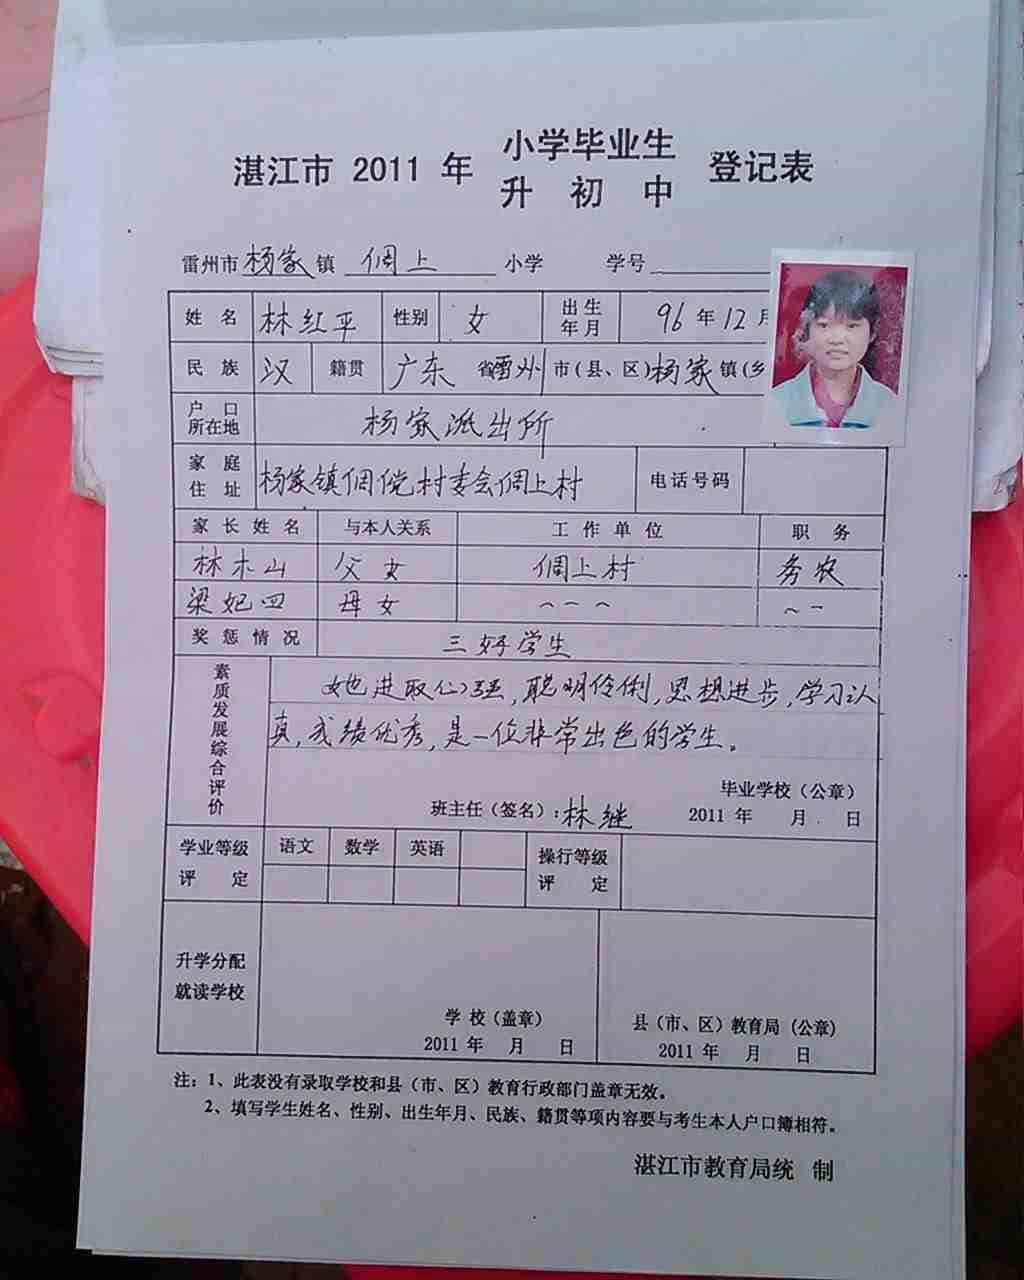 湛江市 2011 年 小学毕业生 登记表
升 初 中
雷州市杨家镇 倜上 小学 学号
姓 名 林红平 性别 女 出生年月 96年12月
民 族 汉 籍贯 广东 省雷州 市(县、区)杨家镇(乡
户 口所在地 杨家派出所
家 庭住 址 杨家镇倜傥村委会倜上村 电话号码
家 长 姓 名 与本人关系 工 作 单 位 职 务
林木山 父女 倜上村 务农
梁妃四 母女 ~ ~ ~ ~ ~
奖 惩 情 况 三好学生
素质发展综合评价
她进取心强,聪明伶俐,思想进步,学习认
真,成绩优秀,是一位非常出色的学生。
毕业学校(公章)
班主任(签名):林继 2011 年 月 日
学业等级评 定 语文 数学 英语 操行等级评 定
升学分配就读学校
学 校(盖章) 县(市、区)教育局(公章)
2011 年 月 日 2011 年 月 日
注:1、此表没有录取学校和县(市、区)教育行政部门盖章无效。
2、填写学生姓名、性别、出生年月、民族、籍贯等项内容要与考生本人户口簿相符。
湛江市教育局统 制